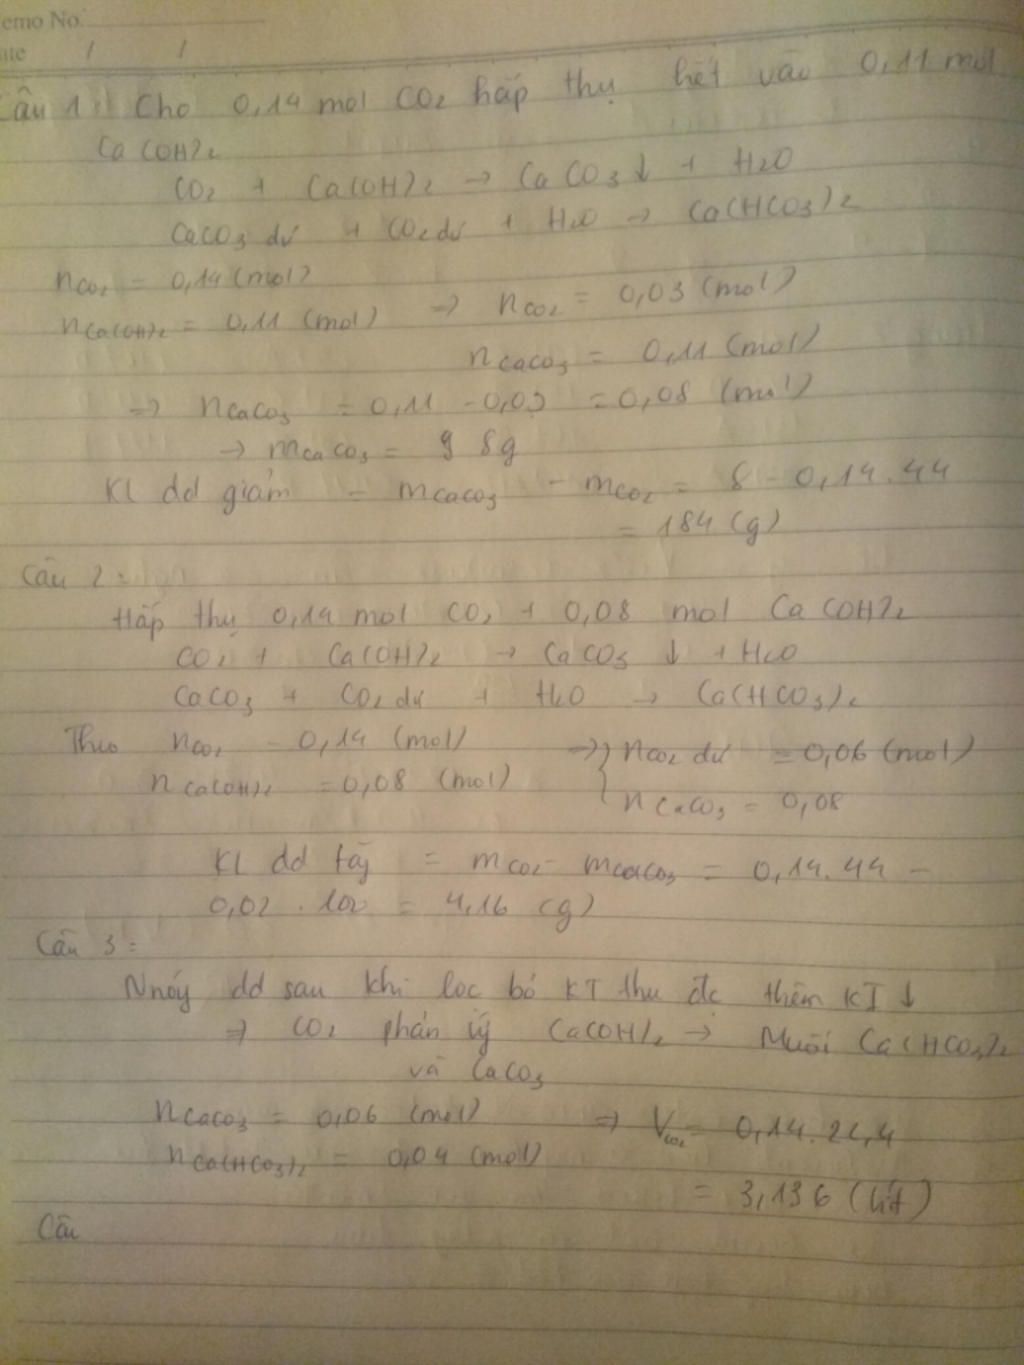 emo No.
ate / /
Câu 1: Cho 0,14 mol CO2 hấp thụ hết vào 0,11 mol
Ca(OH)2
CO2 + Ca(OH)2 → CaCO3↓ + H2O
CaCO3 dư + CO2 dư + H2O → Ca(HCO3)2
nCO2 = 0,14 (mol)
nCa(OH)2 = 0,11 (mol) ⇒ nCO2 = 0,03 (mol)
nCaCO3 = 0,11 (mol)
⇒ nCaCO3 = 0,11 - 0,03 = 0,08 (mol)
→ mCaCO3 = 8g
KL dd giảm = mCaCO3 - mCO2 = 8 - 0,14.44
= 184 (g)
Câu 2:
Hấp thụ 0,14 mol CO2 + 0,08 mol Ca(OH)2
CO2 + Ca(OH)2 → CaCO3 ↓ + H2O
CaCO3 + CO2 dư + H2O → Ca(HCO3)2
Theo nCO2 = 0,14 (mol) ⇒ { nCO2 dư = 0,06 (mol)
nCa(OH)2 = 0,08 (mol) nCaCO3 = 0,08
KL dd tăg = mCO2 - mCaCO3 = 0,14.44 -
0,02 . 100 = 4,16 (g)
Câu 3:
dd sau khi lọc bỏ KT thu đc thêm KT ↓
⇒ CO2 phản ứg Ca(OH)2 → Muối Ca(HCO3)2
và CaCO3
nCaCO3 = 0,06 (mol) ⇒ VCO2 = 0,14.22,4
nCa(HCO3)2 = 0,04 (mol)
= 3,136 (lít)
Câu